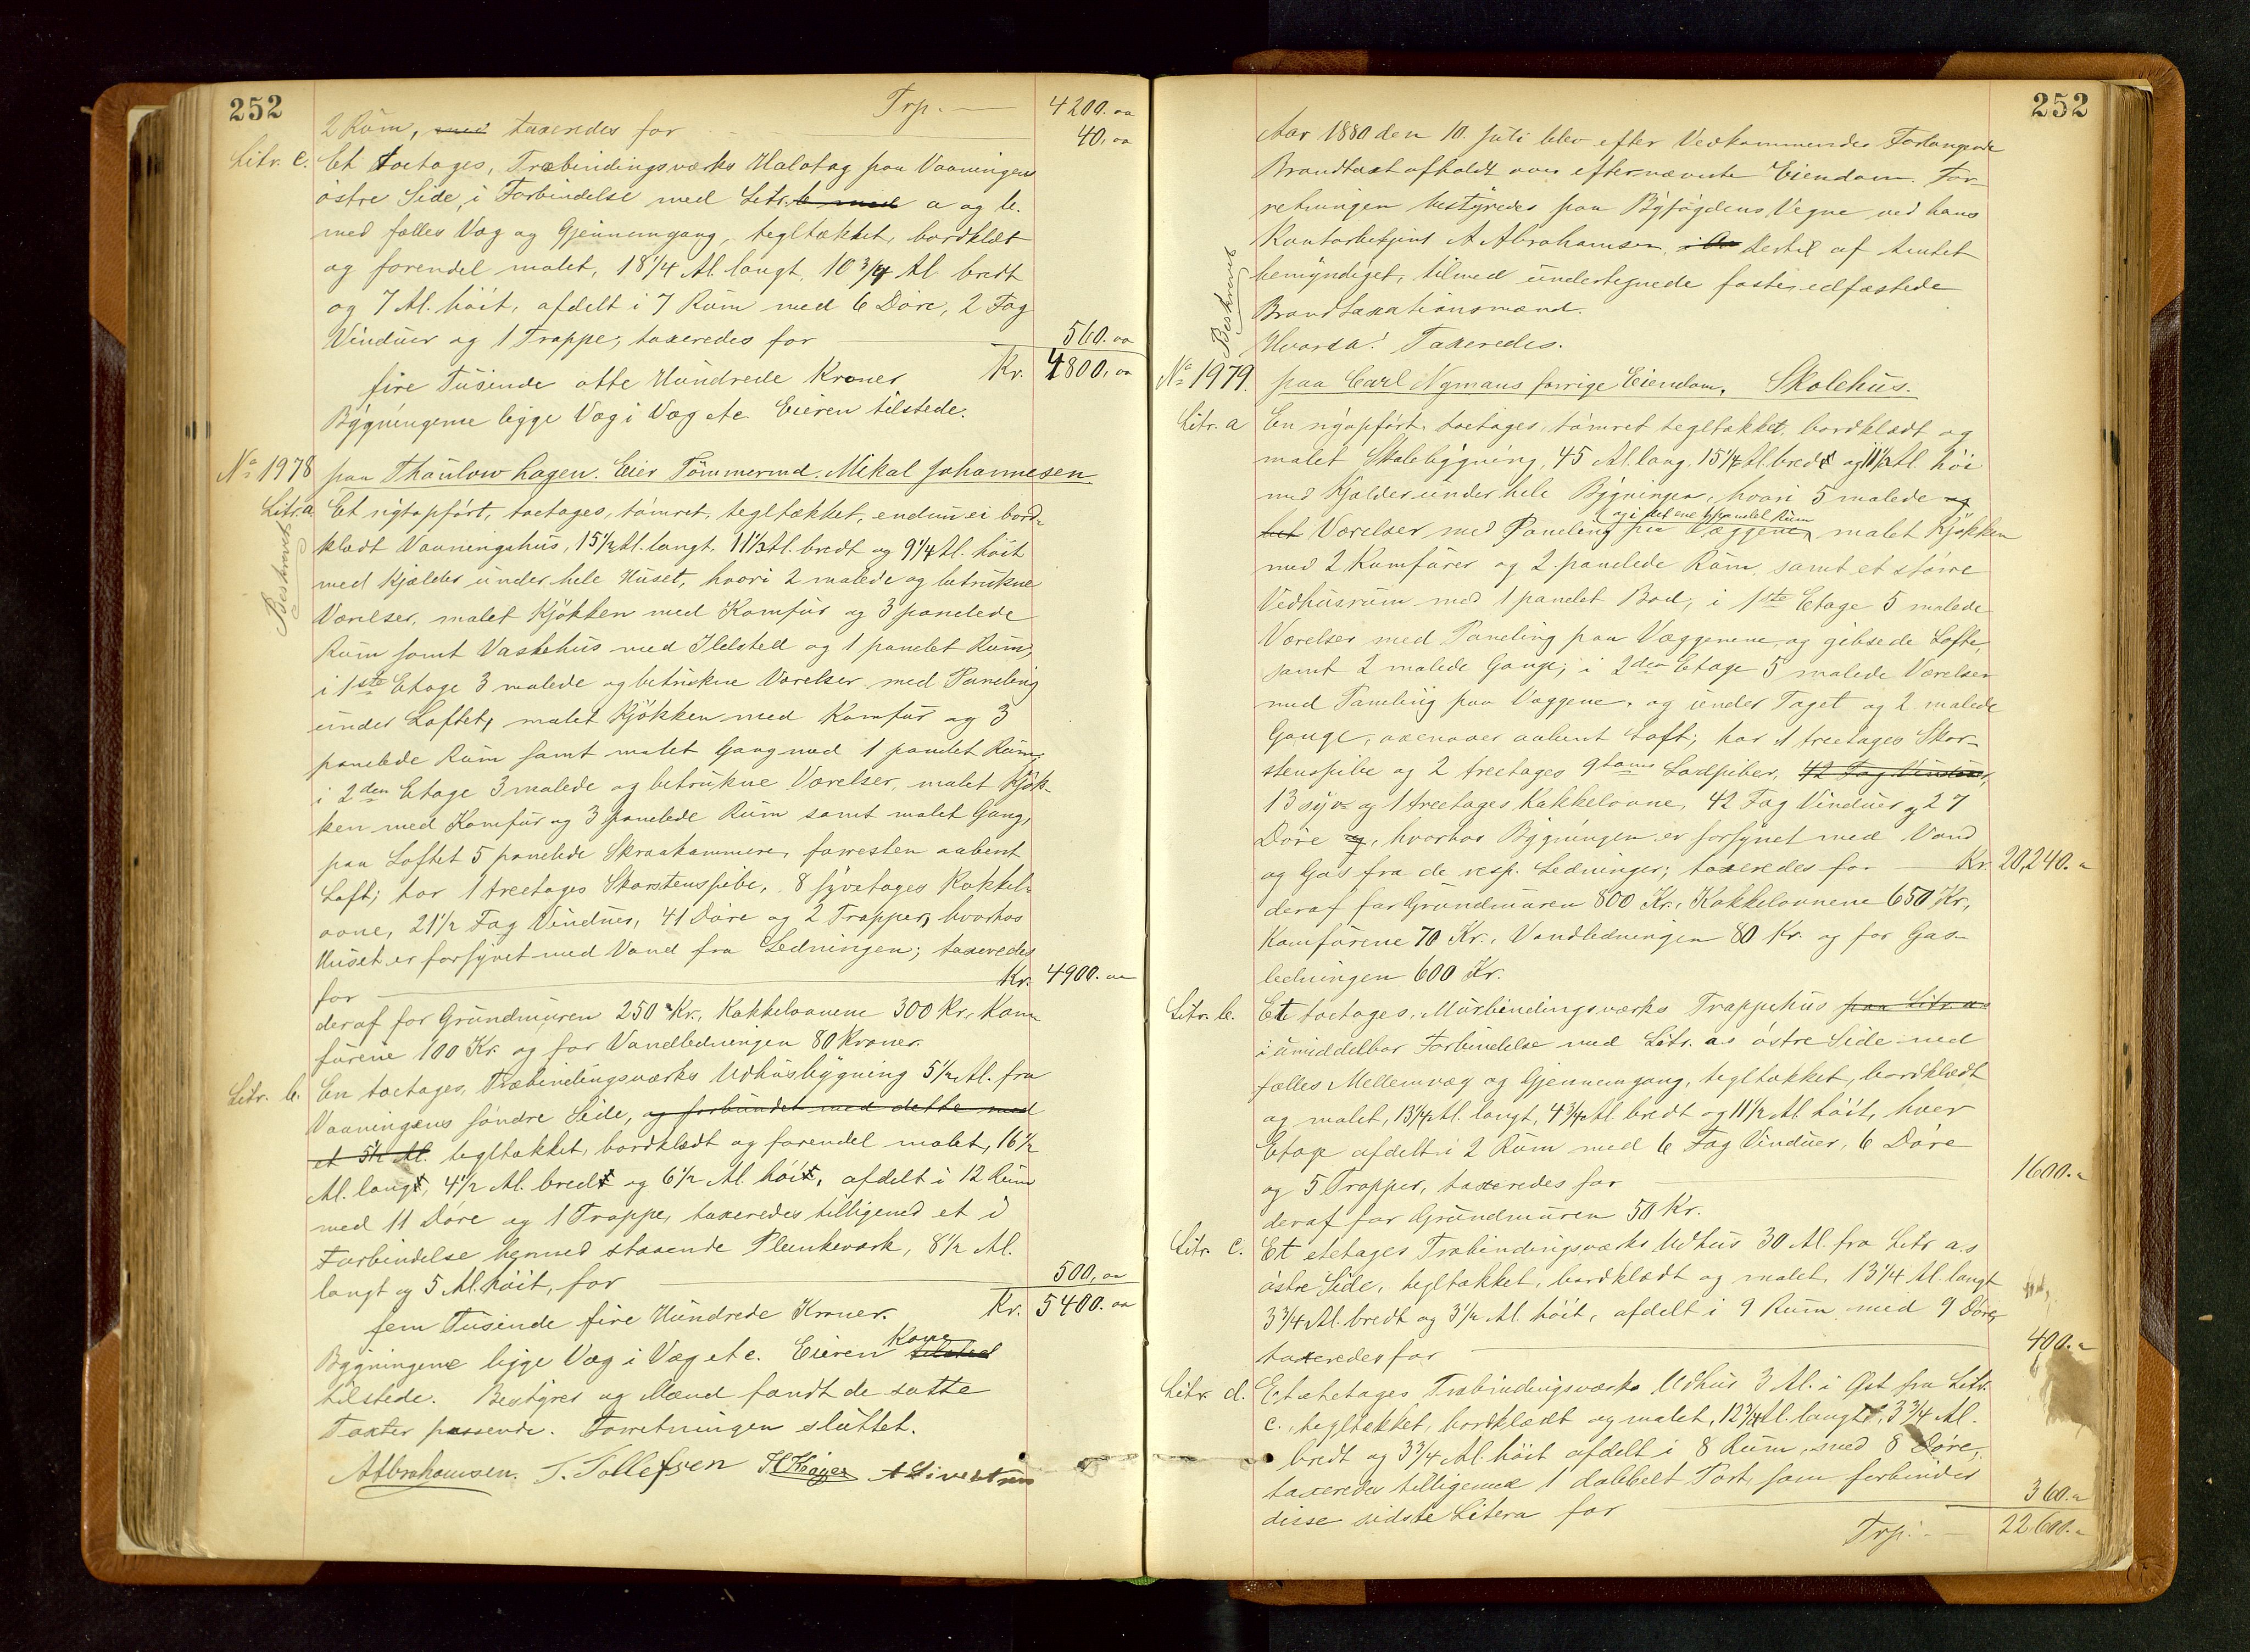 252
Trp. — 4200.00
2 Rum, med taxeredes for 40.00
Litr. c. Et toetages, Træbindingsværks Halvtag paa Vaaningens
östre Side, i Forbindelse med Litr. b med a og b.
med fælles Væg og Gjennemgang, tegltækket, bordklæt
og forendel malet, 18 1/4 Al. langt, 10 3/4 Al. bredt
og 7 Al. höit, afdelt i 7 Rum med 6 Döre, 2 Fag
Vinduer og 1 Trappe, taxeredes for 560.00
fire Tusinde otte Hundrede Kroner Kr. 4800.00
Bygningerne ligge Væg i Væg etc. Eieren tilstede.
No 1978 paa Thaulowhagen. Eier Tömmermd. Mekal Johannesen
Beskrevet
Litr. a. Et nyt opfört, toetages, tömret, tegltækket, endnu ei bord-
klædt Vaaningshus, 15 1/2 Al. langt, 11 1/2 Al. bredt og 9 1/4 Al. höit
med Kjælder under hele Huset, hvori 2 malede og betrukne
Værelser, malet Kjökken med Komfur og 3 panelede
Rum samt Vaskehus med Ildsted og 1 panelet Rum,
i 1ste Etage 3 malede og betrukne Værelser med Paneling
under Loftet, malet Kjökken med Komfur og 3
panelede Rum samt malet Gang med 1 panelet Rum;
i 2den Etage 3 malede og betrukne Værelser, malet Kjök-
ken med Komfur og 3 panelede Rum samt malet Gang,
paa Loftet 5 panelede Skraakammere, forresten aabent
Loft; har 1 treetages Skorstenspibe, 8 fyretages Kakkel-
ovne, 21 1/2 Fag Vinduer, 41 Döre og 2 Trapper, hvorhos
Huset er forsynet med Vand fra Ledningen; taxeredes
for Kr. 4900.00
deraf for Grundmuren 250 Kr., Kakkelovnene 300 Kr., Kom-
furene 100 Kr. og for Vandledningen 80 Kroner.
Litr. b. En toetages, Træbindingsværks Udhusbygning 5 1/2 Al. fra
Vaaningens söndre Side, og forbundet med dette med
et 5 1/2 Al. tegltækket, bordklædt og forendel malet, 16 1/2
Al. langt, 4 1/2 Al. bredt og 6 1/2 Al. höit, afdelt i 12 Rum
med 11 Döre og 1 Trappe, taxeredes tilligemed et i
Forbindelse hermed staaende Plankeværk, 8 1/2 Al.
langt og 5 Al. höit, for 500.00
fem Tusinde fire Hundrede Kroner. Kr. 5400.00
Bygningerne ligge Væg i Væg etc. Eieren Kone tilsted
tilstede. Bestyrer og Mænd fandt de satte
Taxter passende. Forretningen sluttet.
AAbrahamsen. T. Tollefsen H Krager A Sivertsen
252
Aar 1880 den 10. Juli blev efter Vedkommendes Forlangende
Brandtaxt afholdt over efternævnte Eiendom. For-
retningen bestyredes paa Byfogdens Vegne ved hans
Kontorbetjent A Abrahamsen, dertil af Amtet
bemyndiget, tilmed undertegnede faste, edfæstede
Brandtaxationsmænd.
Hvorda! Taxeredes.
Beskrevet
No 1979. paa Carl Nymans forrige Eiendom. Skolehus.
Litr. a En nyopfört, toetages, tömret tegltækket, bordklædt og
malet Skolebygning, 45 Al. lang, 15 1/4 Al. bredt og 11 1/2 Al. höi
med Kjælder under hele Bygningen, hvori 5 malede og
og i det ene 1 panelet Rum
Værelser med Paneling paa Væggene, malet Kjökken
med 2 Komfurer og 2 panelede Rum, samt et större
Vedhusrum med 1 panelet Bod, i 1ste Etage 5 malede
Værelser med Paneling paa Væggenene og gibsede Lofte,
samt 2 malede Gange; i 2den Etage 5 malede Værelser
med Paneling paa Væggene, og under Taget og 2 malede
Gange, ovenover aabent Loft; har 1 treetages Skor-
stenspibe og 2 treetages 9toms Lodpiber, 42 Fag Vinduer,
13 og 1 treetages Kakkelovne, 42 Fag Vinduer og 27
Döre og, hvorhos Bygningen er forsynet med Vand
og Gas fra de resp. Ledninger; taxeredes for Kr. 20,240.00
deraf for Grundmuren 800 Kr., Kakkelovnene 650 Kr.,
Komfurene 70 Kr., Vandledningen 80 Kr. og for Gas-
ledningen 600 Kr.
Litr. b. Et toetages, Murbindingsværks Trappehus paa Litr. as
i umiddelbar Forbindelse med Litr. a.s östre Side med
fælles Mellemvæg og Gjennemgang, tegltækket, bordklædt
og malet, 13 1/4 Al. langt, 4 3/4 Al. bredt og 11 1/2 Al. höit, hver
Etage afdelt i 2 Rum med 6 Fag Vinduer, 6 Döre
og 5 Trapper, taxeredes for 1600.00
deraf for Grundmuren 50 Kr.
Litr. c. Et etetages Træbindingsværks Udhus 30 Al. fra Litr a.s
östre Side, tegltækket, bordklædt og malet, 13 1/4 Al. langt
3 3/4 Al. bredt og 3 1/2 Al. höit, afdelt i 9 Rum med 9 Döre,
taxeredes for 400.00
Litr. d. Et etetages Træbindingsværks Udhus 3 Al. i Öst fra Litr.
c., tegltækket, bordklædt og malet, 12 3/4 Al. langt, 3 3/4 Al.
bredt og 3 3/4 Al. höit afdelt i 8 Rum, med 8 Döre,
taxeredes tilligemed 1 dobbelt Port, som forbinder
disse sidste Litera for 360.00
Trp. — 22,600.00